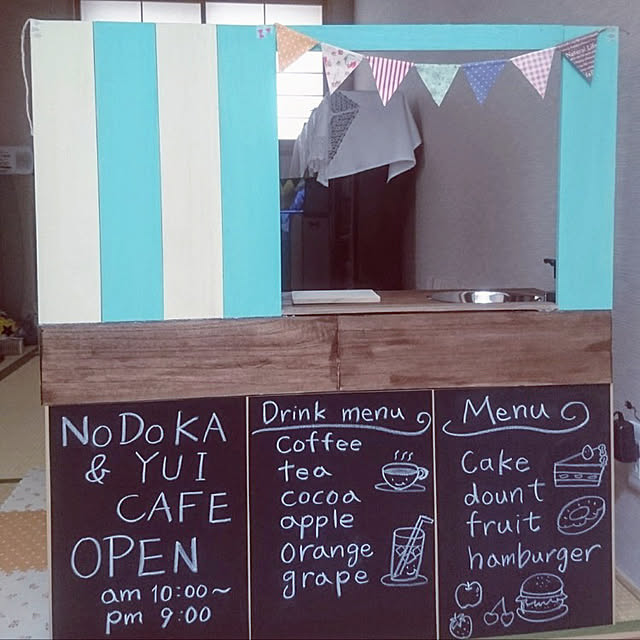 NoDoKA
& YUI
CAFE
OPEN
am 10:00~
pm 9:00
Drink menu
Coffee
tea
cocoa
apple
orange
grape
Menu
Cake
dount
fruit
hamburger